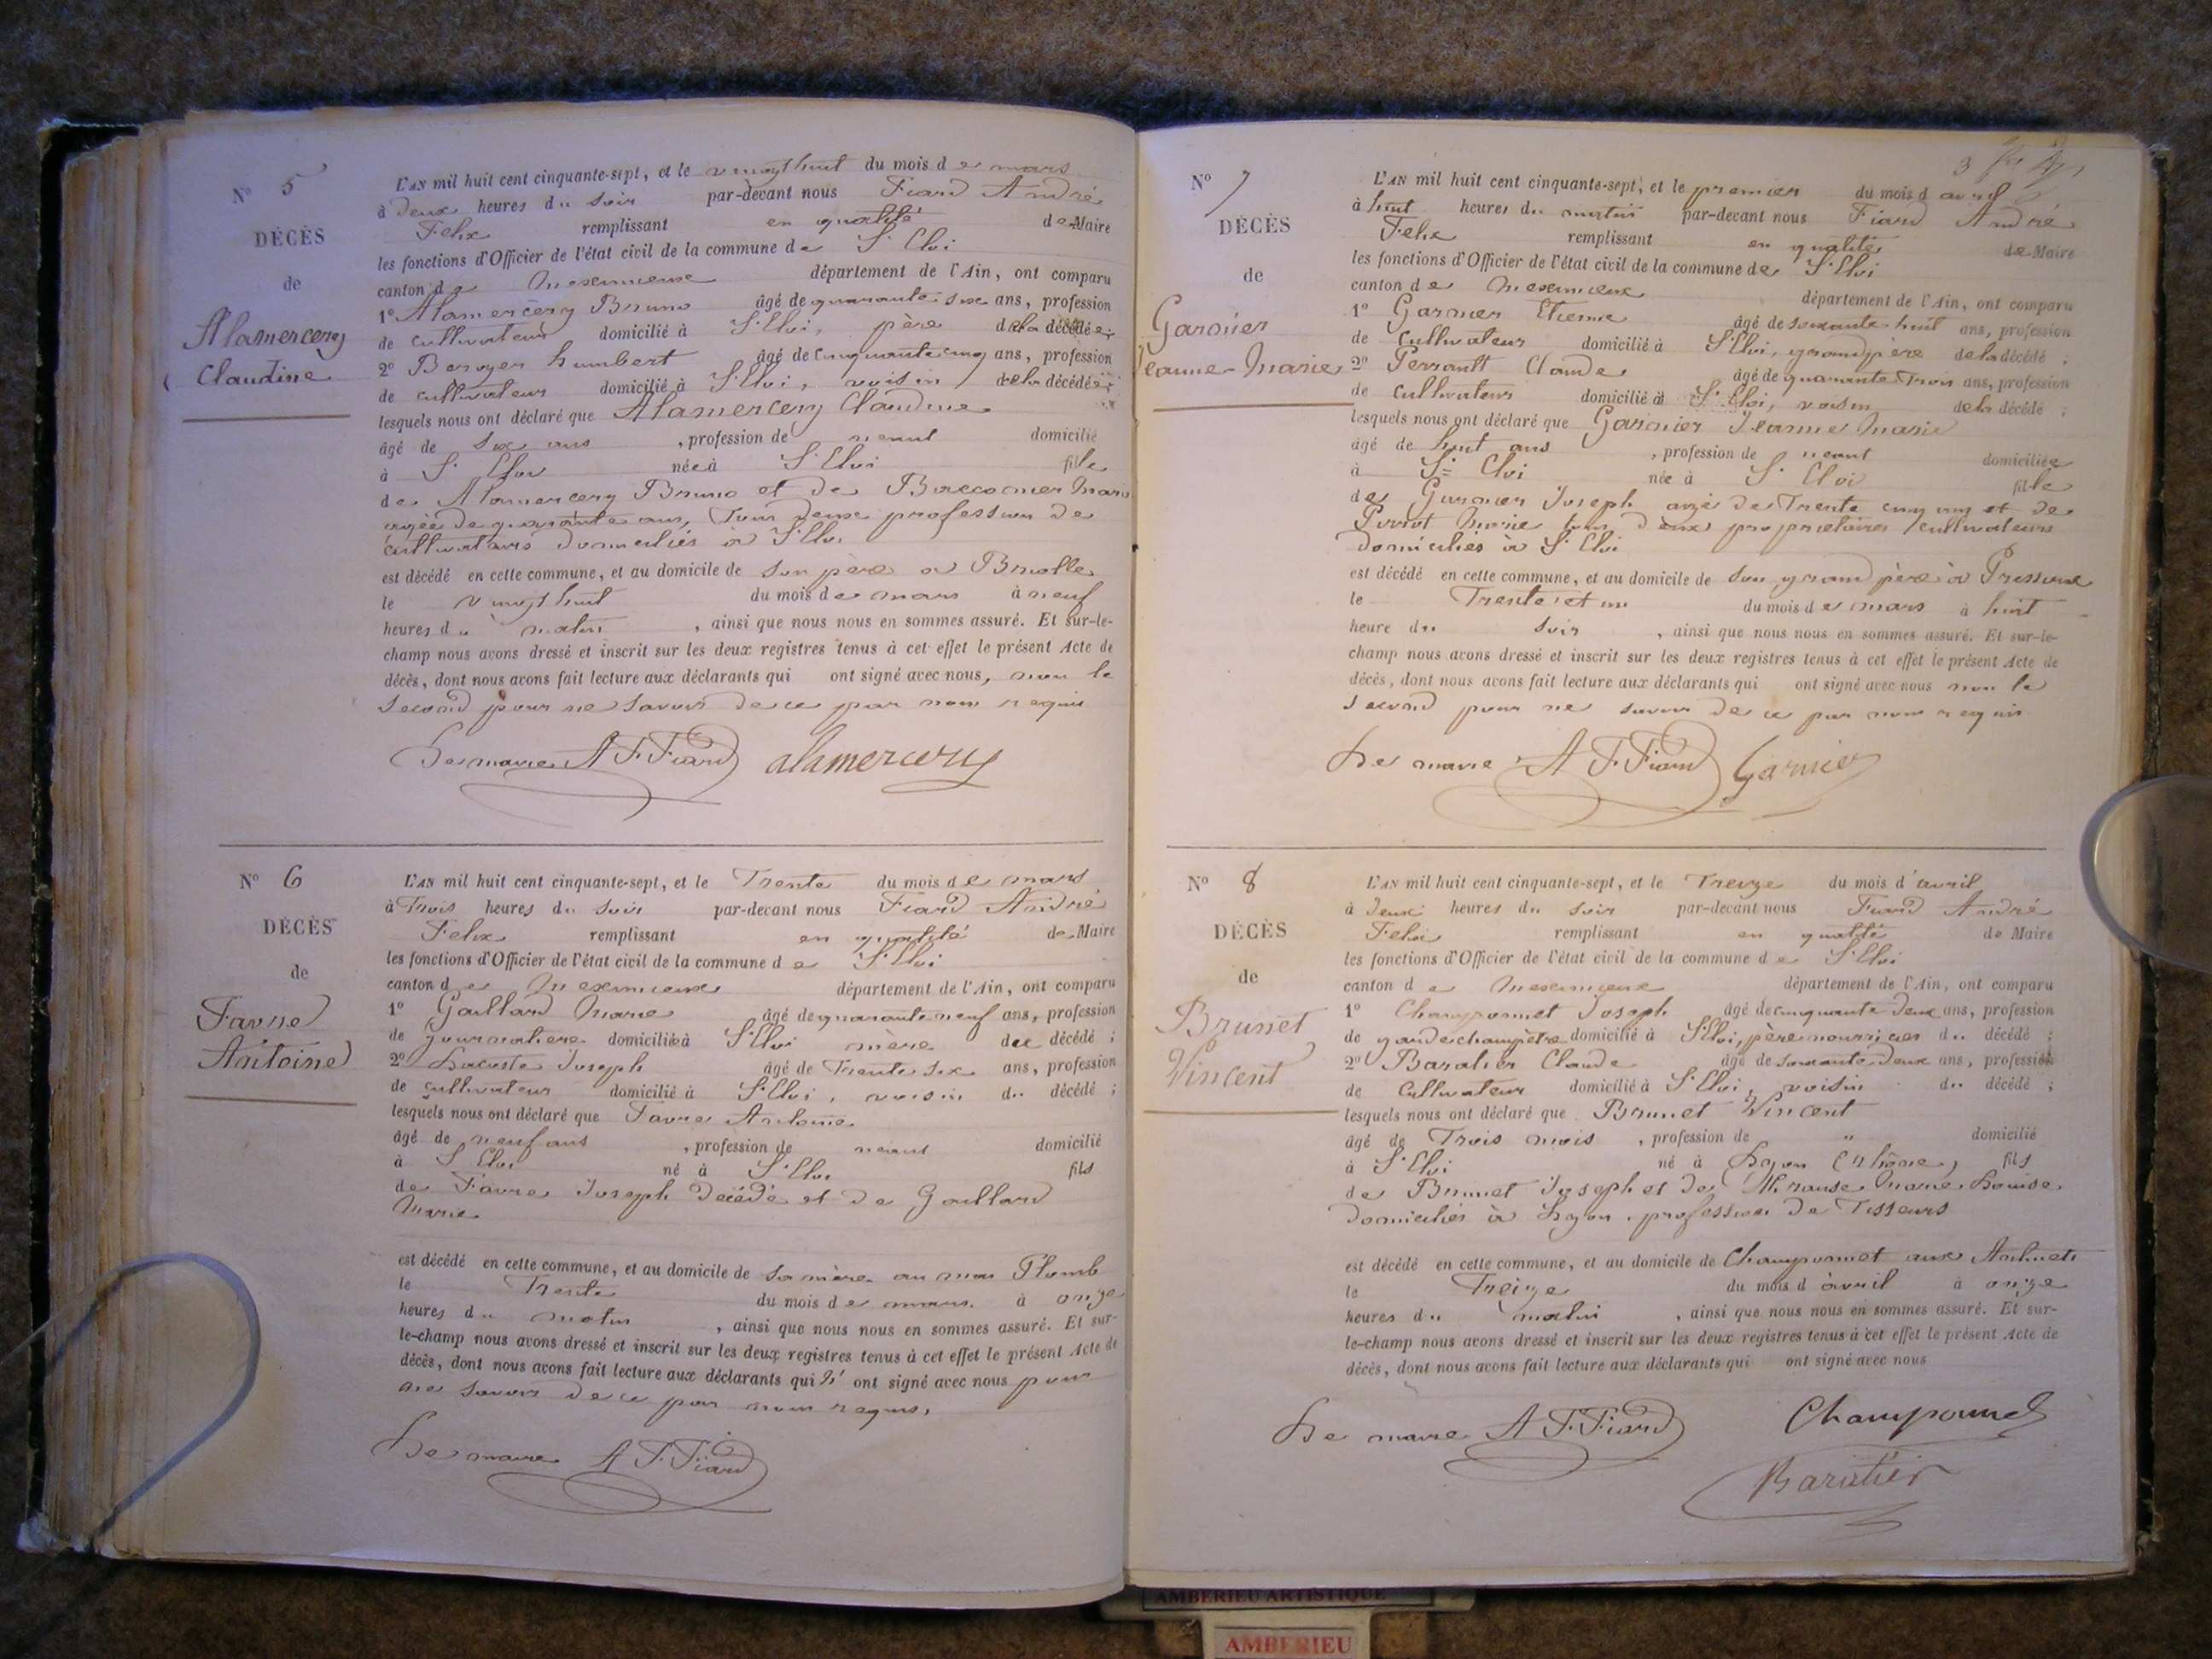 N° 5
DÉCÈS
de
Alamercery
Claudine
L'AN mil huit cent cinquante-sept, et le vingt huit du mois de mars
à deux heures du soir par-devant nous Fiard André
Felix remplissant en qualité de Maire
les fonctions d'Officier de l'état civil de la commune de St Eloi
canton de Meximieux département de l'Ain, ont comparu
1° Alamercery Bruno âgé de quarante six ans, profession
de cultivateur domicilié à St Eloi, père de la décédée;
2° Humbert âgé de cinquante cinq ans, profession
de cultivateur domicilié à St Eloi, voisin de la décédée;
lesquels nous ont déclaré que Alamercery Claudine
âgé de six ans , profession de néant domicilié
à St Eloi née à St Eloi fille
de Alamercery Bruno et de Marie
agée de quarante ans, tous deux profession de
cultivateurs domiciliés à St Eloi
est décédé en cette commune, et au domicile de son père à
le vingt huit du mois de mars à neuf
heures du matin , ainsi que nous nous en sommes assuré. Et sur-le-
champ nous avons dressé et inscrit sur les deux registres tenus à cet effet le présent Acte de
décès, dont nous avons fait lecture aux déclarants qui ont signé avec nous, non le
second pour ne savoir de ce par nous requis
Le maire A F Fiard alamercery
N° 6
DÉCÈS
de
Favre
Antoine
L'AN mil huit cent cinquante-sept, et le Trente du mois de mars
à Trois heures du soir par-devant nous Fiard André
Felix remplissant en qualité de Maire
les fonctions d'Officier de l'état civil de la commune de St Eloi
canton de Meximieux département de l'Ain, ont comparu
1° Gaillard Marie âgé de quarante neuf ans, profession
de journalière domiciliée à St Eloi mère du décédé ;
2° Lacoste Joseph âgé de Trente six ans, profession
de cultivateur domicilié à St Eloi, voisin du décédé ;
lesquels nous ont déclaré que Favre Antoine
âgé de neuf ans , profession de néant domicilié
à St Eloi né à St Eloi fils
de Favre Joseph décédé et de Gaillard
Marie
est décédé en cette commune, et au domicile de sa mère au mas Plomb
le Trente du mois de mars à onze
heures du matin , ainsi que nous nous en sommes assuré. Et sur-
le-champ nous avons dressé et inscrit sur les deux registres tenus à cet effet le présent Acte de
décès, dont nous avons fait lecture aux déclarants qui n' ont signé avec nous pour
ne savoir de ce par nous requis.
Le maire A F Fiard
N° 7
DÉCÈS
de
Garnier
Jeanne-Marie
L'AN mil huit cent cinquante-sept, et le premier du mois d avril
à huit heures du matin par-devant nous Fiard André
Felix remplissant en qualité de Maire
les fonctions d'Officier de l'état civil de la commune de St Eloi
canton de Meximieux département de l'Ain, ont comparu
1° Garnier Etienne âgé de soixante-huit ans, profession
de cultivateur domicilié à St Eloi, grand père de la décédé ;
2° Perrault Claude âgé de quarante trois ans, profession
de cultivateur domicilié à St Eloi, voisin de la décédé ;
lesquels nous ont déclaré que Garnier Jeanne Marie
âgé de huit ans , profession de néant domiciliée
à St Eloi née à St Eloi fille
de Garnier Joseph agé de Trente cinq ans et de
Marie tous deux propriétaires cultivateurs
domiciliés à St Eloi
est décédé en cette commune, et au domicile de son grand père à
le Trente et un du mois de mars à huit
heure du soir , ainsi que nous nous en sommes assuré. Et sur-le-
champ nous avons dressé et inscrit sur les deux registres tenus à cet effet le présent Acte de
décès, dont nous avons fait lecture aux déclarants qui ont signé avec nous non le
second pour ne savoir de ce par nous requis
Le maire A F Fiard Garnier
N° 8
DÉCÈS
de
Brunet
Vincent
L'AN mil huit cent cinquante-sept, et le Treize du mois d'avril
à deux heures du soir par-devant nous Fiard André
Felix remplissant en qualité de Maire
les fonctions d'Officier de l'état civil de la commune de St Eloi
canton de Meximieux département de l'Ain, ont comparu
1° Champonnet Joseph âgé de cinquante deux ans, profession
de garde champêtre domicilié à St Eloi, père nourricier du décédé ;
2° Baratier Claude âgé de soixante deux ans, profession
de cultivateur domicilié à St Eloi, voisin du décédé ;
lesquels nous ont déclaré que Brunet Vincent
âgé de Trois mois , profession de " domicilié
à St Eloi né à Lyon (Rhône) fils
de Brunet Joseph et de Marie Louise
domiciliés à Lyon, profession de Tisseurs
est décédé en cette commune, et au domicile de Champonnet aux
le Treize du mois d'avril à onze
heures du matin , ainsi que nous nous en sommes assuré. Et sur-
le-champ nous avons dressé et inscrit sur les deux registres tenus à cet effet le présent Acte de
décès, dont nous avons fait lecture aux déclarants qui ont signé avec nous
Le maire A F Fiard Champonnet
Baratier
AMBERIEU ARTISTIQUE
AMBERIEU